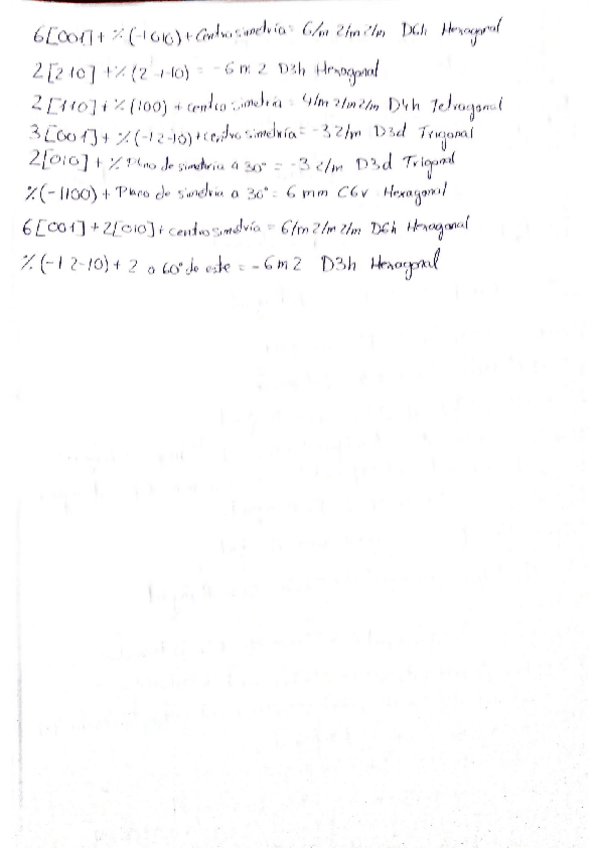 6[001] + %(-1010) + Centrosimetría = 6/m 2/m 2/m D6h Hexagonal
2[210] + %(2-1-10) = -6 m 2 D3h Hexagonal
2[110] + %(100) + centro simetria = 4/m 2/m 2/m D4h Tetragonal
3[001] + %(-12-10) + centro simetría = -3 2/m D3d Trigonal
2[010] + % Plano de simetria a 30° = -3 2/m D3d Trigonal
%(-1100) + Plano de simetria a 30° = 6 mm C6v Hexagonal
6[001] + 2[010] + centrosimetría = 6/m 2/m 2/m D6h Hexagonal
%(-12-10) + 2 a 60° de este = -6 m 2 D3h Hexagonal